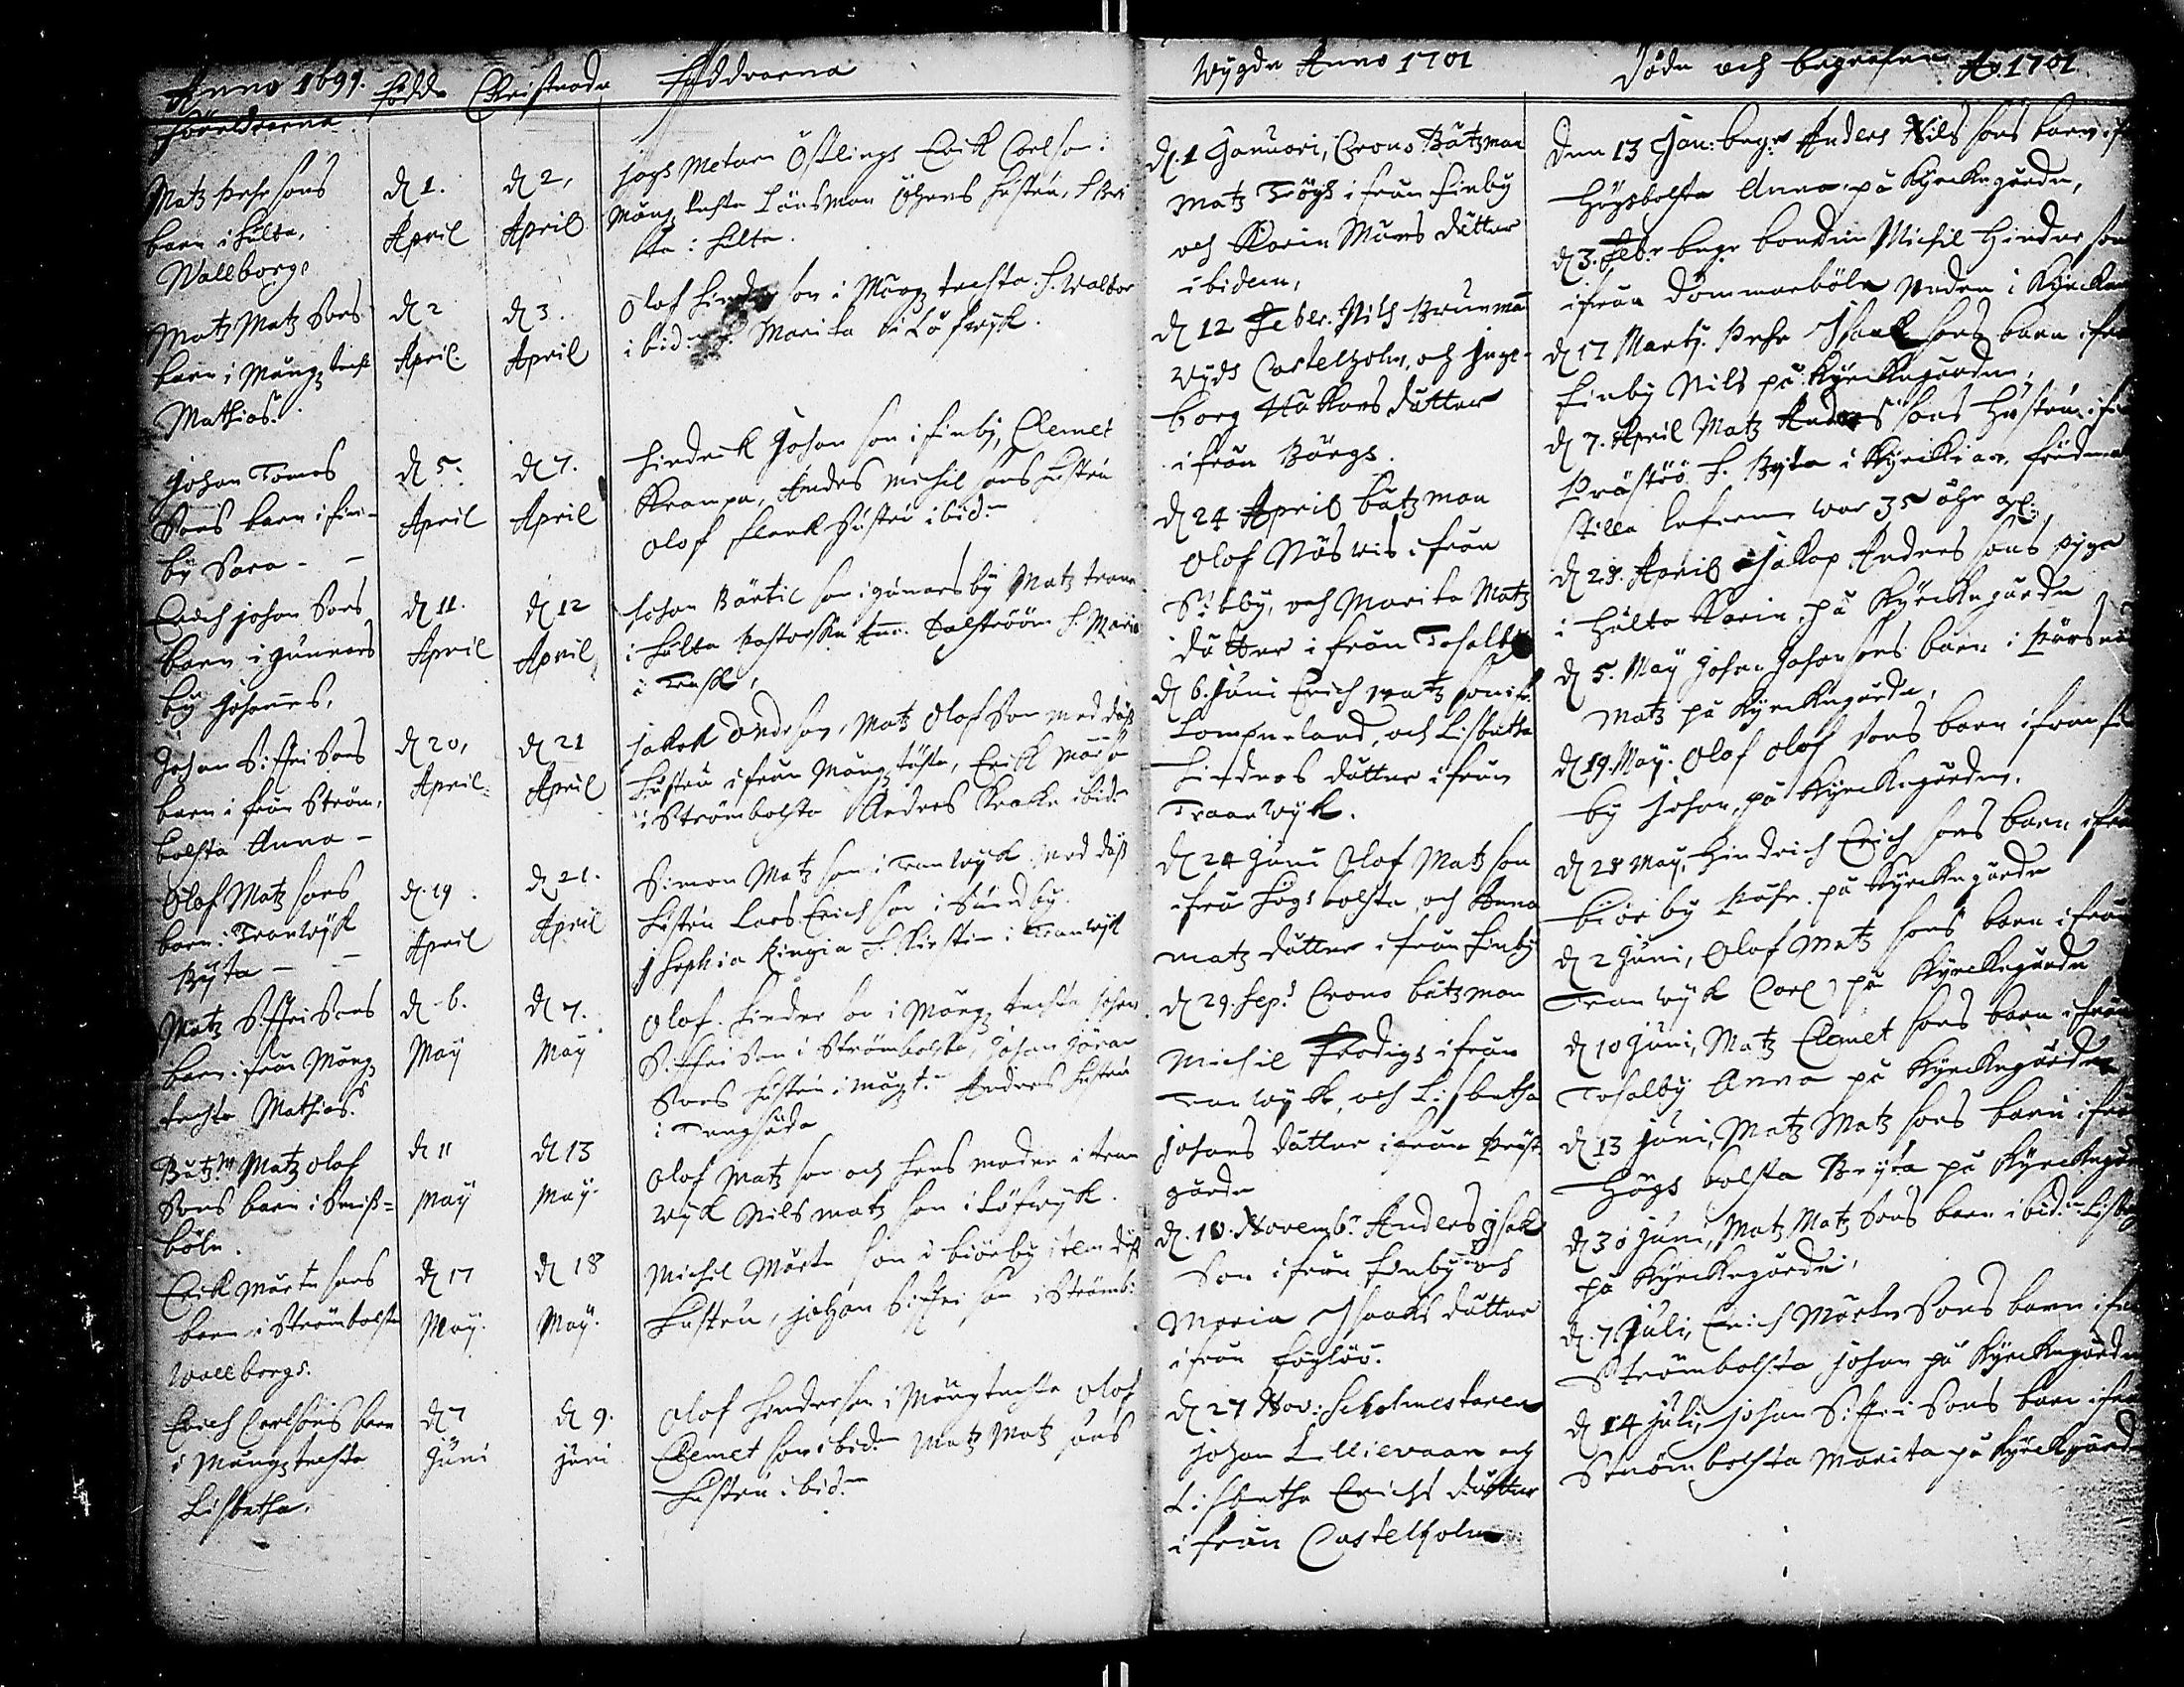 Anno 1691. födde Christnade Faddrarna
Föräldrarna
Matz Pehrsons
barn i Hulta,
Wallborg
d 1.
April
d 2,
April
Östlings Erik Carlson i
Mångztechta Länsman hustru, H. Bri
ta i Hulta.
Matz Matz Sons
barn i Mångztecht
Mathias.
d 2
April
d 3.
April
Olof Hinderson i Mångztechta H. Walbor
ibid: Marita i Löfwyk.
Johan Tomes
Sons barn i Fin-
by Sara - -
d 5.
April
d 7.
April
Hindrik Johan son i Finby, Clemet
Krampa, Andes Michil sons Hustru
Olof hustru ibid:
Erich Johan Sons
barn i gunnars
by Johannes,
d 11.
April
d 12
April
Johan Bärtil son i gunnarsby Matz
i Hulta H. Maria
i
Johan Siffri Sons
barn i från Ström,
bolsta Anna -
d 20,
April
d 21
April
Jakob Anderson, Matz Olofson med dess
Hustru ifrån Mångztechta, Erik
i Strömbolsta Anders ibid:
Olof Matz sons
barn i Tranwyk
Bryta - -
d. 19.
April
d 21.
April
Simon Matz son i Tranwyk med dess
Hustru Lars Erichson i Sundby.
Sophia Ringia H. Kirstin i Tranwyk
Matz Siffri Sons
barn ifrån Mång
techta Mathias.
d 6.
May
d 7.
May
Olof Hinder son i Mångztechta Johan
Siffri Son i Strömbolsta, Johan Jöran
Sons Hustru i mångt: Anders Hustru
i
Båtzm Matz Olof
Sons barn i
böle.
d 11
May
d 13
May.
Olof Matz son och hans moder i Tran
wyk Nils matz son i Löfwyk.
Erik Mårten sons
barn i Strömbolsta
Wallborg.
d 17
May.
d 18
May.
Michel Mårten son i biörby item dess
Hustru, Johan Siffri son i Strömb:
Erich Carlsons barn
i Mångztechta
Lisbetha.
d 7
Juni
d 9.
juni
Olof Hinderson i Mångtechta Olof
Clemet son ibid: Matz Matz sons
Hustru ibid:
Wygde Anno 1701
d. 1 Januari, Crono Båtzman
Matz Tröghs ifrån Finby
och Karin Måns dätter
ibidem,
d 12 Febr. Nils Brunman
wyds Castelholm, och Inge-
borg Håkans dätter
ifrån Bärgs.
d 24 April båtzman
Olof Näswis ifrån
Sibby, och Marita Matz
dätter ifrån Tosalby
d 6. Juni Erich Matz son if.
Lompneland, och Lisbetha
Hinders dätter ifrån
Tranwyk.
d 24 Juni Olof Matz son
ifrå Högsbolsta och Anna
matz dätter ifrån Finby
d 29. Sep: Crono båtzman
Michil Frodigs ifrån
Tranwyk, och Lisbetha
Johans dätter ifrån Prest
gården
d. 10. Novemb: Anders Isak
Son ifrån Finby och
Maria Isaaks dätter
ifrån Föglöö.
d 27 Nov: Scholmestaren
Johan Lillievaan och
Lisbetha Erichs dätter
ifrån Castelholm
Döde och begrafne Ao 1701.
Den 13 Jan: begr Anders Nils sons barn if
Högsbolsta Anna på Kyrckegården,
d 3. Febr begr bonden Michil Hinder son
ifrån Dömmarböle neden i Kyrckan
d 17 Martj. Pehr Isaak sons barn ifrån
Finby Nils på Kyrckegården,
d 7. April Matz Anders sons Hustru ifrån
Prästöö H. Bryta i Kyrckian,
stilla lefverne war 35 åhr gl.
d 28. April Jakop Anders sons pyga
i Hulta Karin på Kyrckegården
d 5. May Johan Johansons barn i
Matz på Kyrckegården,
d 19. May. Olof Olof sons barn ifrån Fin
by Johan, på Kyrckegården.
d 28 May. Hindrich Erich sons barn ifrån
biörby Pehr. på Kyrckegården
d 2 Juni, Olof Matz sons barn ifrån
Tranwyk Carl, på Kyrckegården
d 10 Juni, Matz Clemet sons barn ifrån
Tosalby Anna på Kyrckegården
d 13 Juni, Matz Matz sons barn ifrå
Högsbolsta Bryta på Kyrckegår
d 30 Juni, Matz Matz sons barn ibid: Lisbe
på Kyrckegården,
d. 7 Juli, Erich Mårten Sons barn ifrå
Strömbolsta Johan på Kyrckegården
d 14 Juli, Johan Siffri Sons barn ifrån
Strömbolsta Marita på Kyrckegården